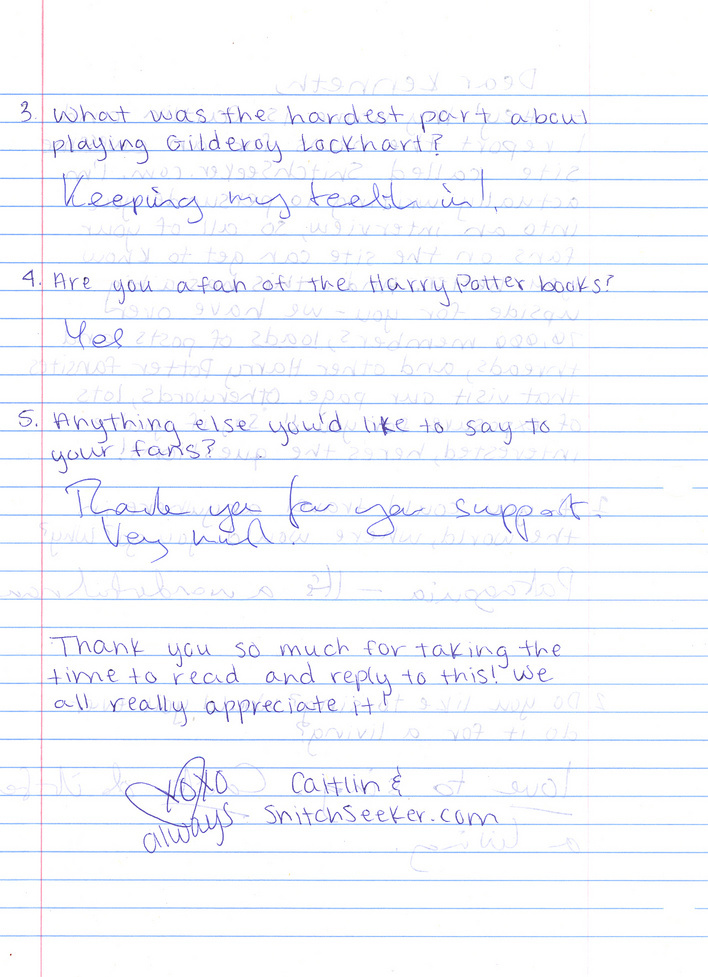 3. What was the hardest part about
playing Gilderoy Lockhart?
Keeping my teeth in!
4. Are you a fan of the Harry Potter books?
Yes
5. Anything else you'd like to say to
your fans?
Thank you for your support.
Very much.
Thank you so much for taking the
time to read and reply to this! We
all really appreciate it!
XOXO Caitlin &
always SnitchSeeker.com